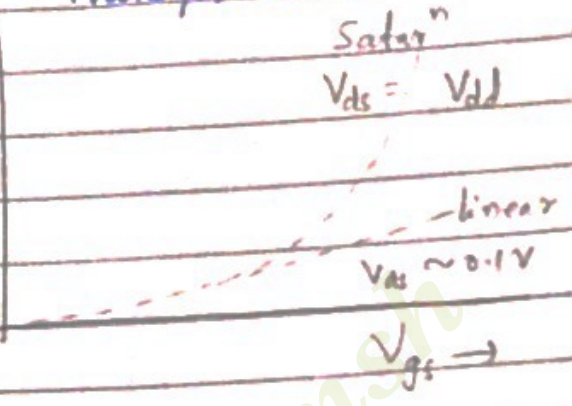 Saturⁿ
Vds = Vdd
linear
Vds ~ 0.1V
Vgs →